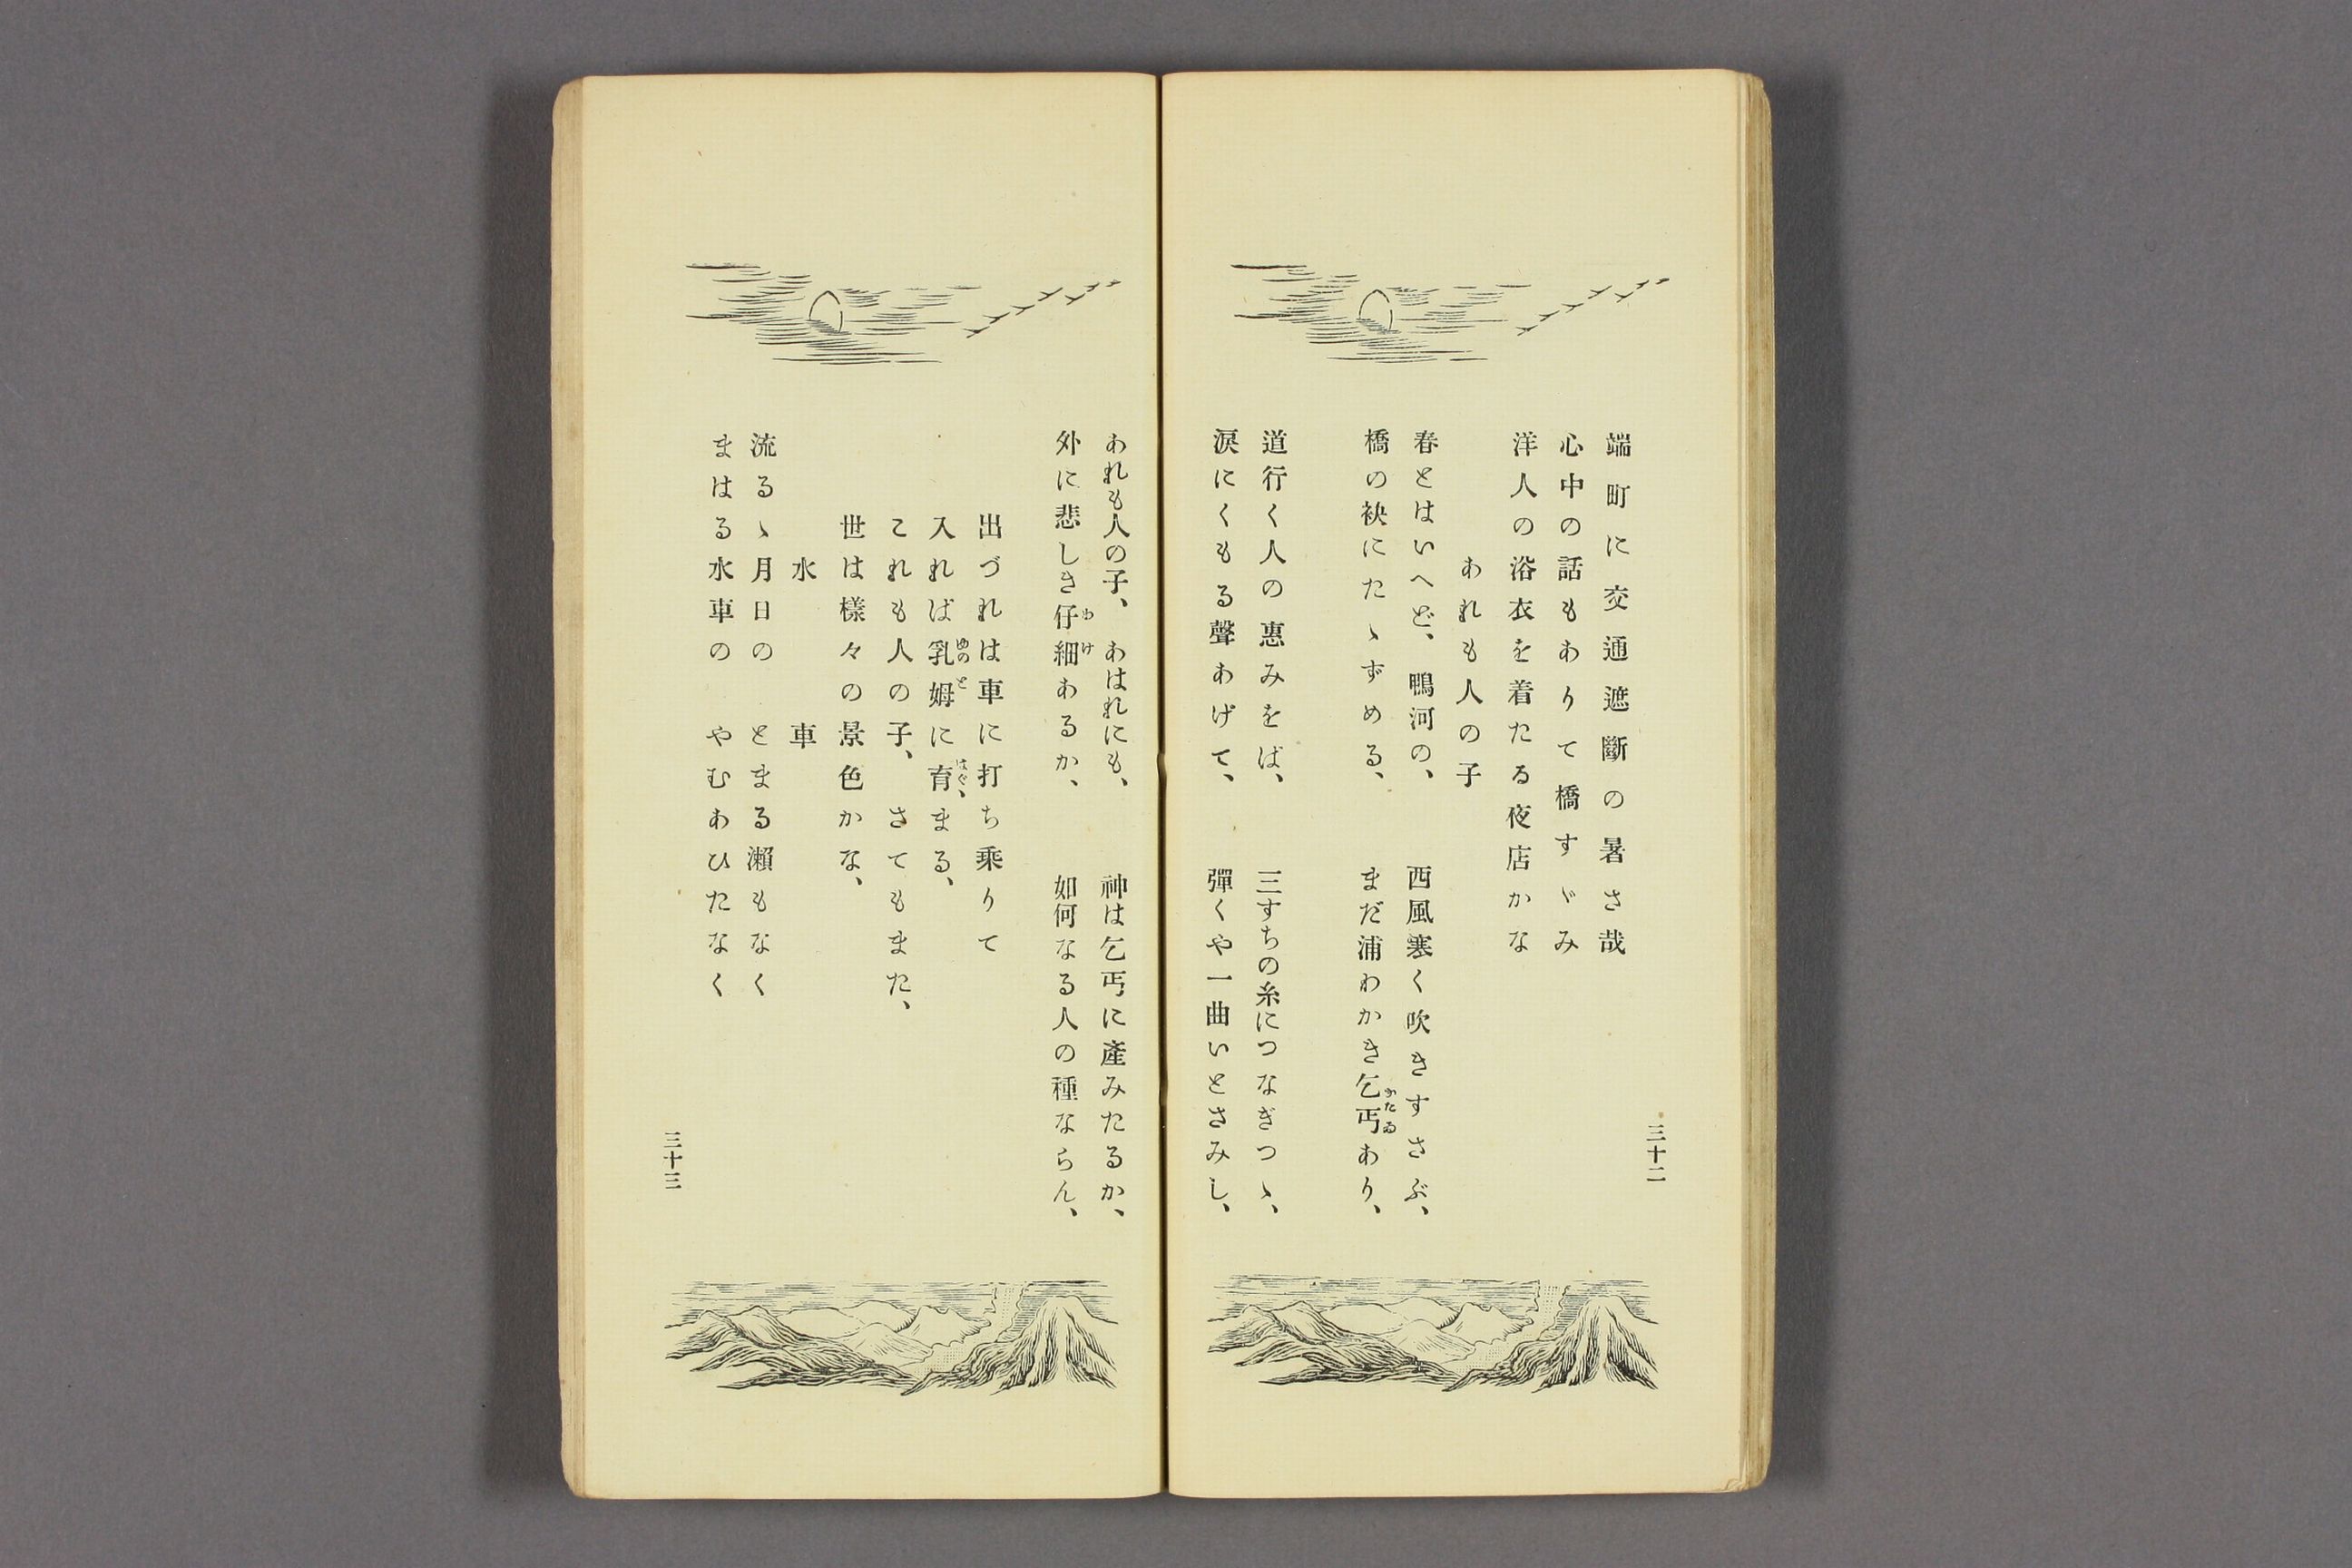 三十二
端町に交通遮斷の暑さ哉
心中の話もありて橋すゞみ
洋人の浴衣を着たる夜店かな
あれも人の子
春とはいへど、鴨河の、　西風寒く吹きすさぶ、
橋の袂にたゝずめる、　まだ浦わかき乞丐あり、
かたゐ
道行く人の惠みをば、　三すちの糸につなぎつゝ、
淚にくもる聲あげて、　彈くや一曲いとさみし、
あれも人の子、あはれにも、　神は乞丐に產みたるか、
外に悲しき仔細あるか、　如何なる人の種ならん、
わけ
出づれは車に打ち乗りて
入れば乳姆に育まる、
めのと　はぐゝ
これも人の子、さてもまた、
世は樣々の景色かな、
水車
流るゝ月日の　とまる瀨もなく
まはる水車の　やむあひたなく
三十三